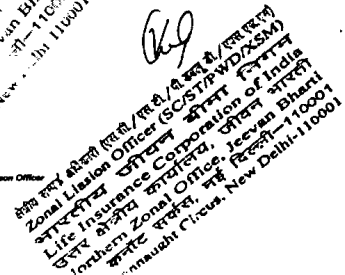 van Bh
-1100
New Delhi 110001
son Officer
क्षेत्रीय सम्पर्क अधिकारी (एस.सी./एस.टी./पी.डब्लू.डी./एक्स.एस.एम)
Zonal Liasion Officer (SC/ST/PWD/XSM)
भारतीय जीवन बीमा निगम
Life Insurance Corporation of India
उत्तर क्षेत्रीय कार्यालय, जीवन भारती
Northern Zonal Office, Jeevan Bharti
कनॉट सर्कस, नई दिल्ली-110001
Connaught Circus, New Delhi-110001